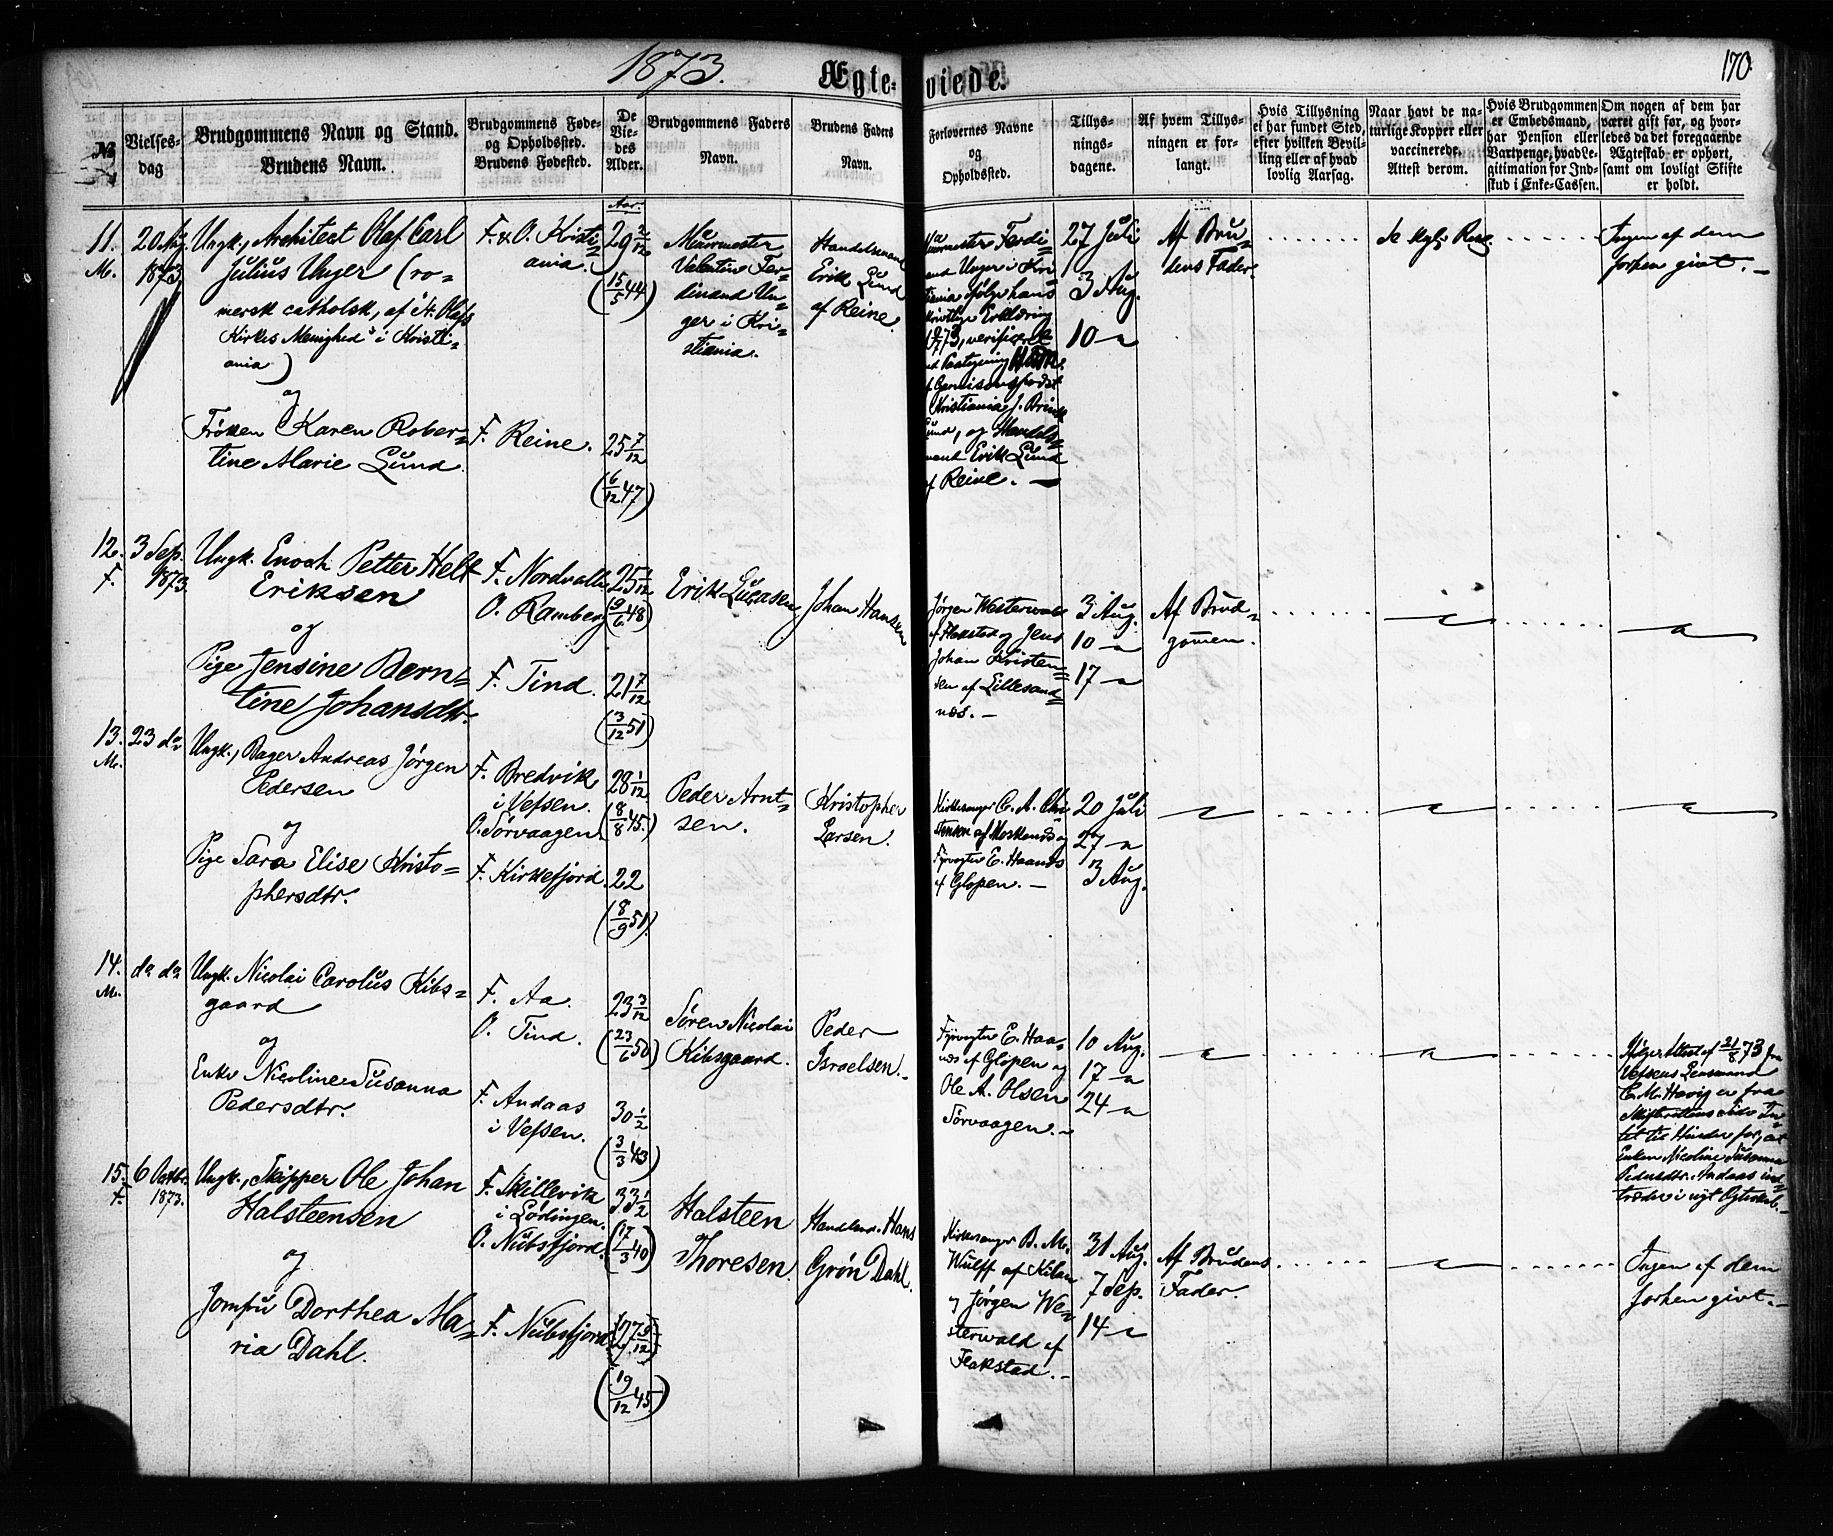 1873.
Ægte-
viede.
170
№
Vielses-
dag
Brudgommens Navn og Stand.
Brudens Navn.
Brudgommens Føde-
og Opholdssted.
Brudens Fødested.
De
Vie-
des
Alder.
Brudgommens Faders
Navn.
Brudens Faders
Navn.
Forlovernes Navne
og
Opholdssted.
Tillys-
nings-
dagene.
Af hvem Tillys-
ningen er for-
langt.
Hvis Tillysning
ei har fundet Sted,
efter hvilken Bevil-
ling eller af hvad
lovlig Aarsag.
Naar havt de na-
turlige Kopper eller
vaccinerede.
Attest derom.
Hvis Brudgommen
er Embedsmand,
har Pension eller
Vartpenge, hvad Le-
gitimation for Ind-
skud i Enke-Cassen.
Om nogen af dem har
været gift før, og hvor-
ledes da det foregaaende
Ægteskab er ophørt,
samt om lovligt Skifte
er holdt.
Aar.
11.
M.
20 Aug.
1873
Ungk., Architect Olaf Carl
Julius Unger (ro-
mersk catholsk, af St. Olafs
Kirkes Menighed i Kristi-
ania)
og
Frøken Karen Rober-
tine Marie Lund.
F. & O. Kristi-
ania.
F. Reine.
29 2/12
(15/5 44)
25 7/12
(6/12 47)
Muurmester
Valentin Fer-
dinand Un-
ger i Kri-
stiania.
Handelsmand
Erik Lund
af Reine
Muurmester Ferdi-
nand Unger i Kri-
stiania ifølge hans
skriftlige Erklæring
73, verificeret
ved Paategning
Garnisons
Kristiania J. Brink
Lund, og Handels-
mand Erik Lund
af Reine. —
27 Juli
3 Aug.
10 —
Af Bru-
dens Fader.
Ingen af dem
forhen givt. —
12.
F.
3 Sep.
1873.
Ungk. Enoch Petter Helt
Eriksen
og
Pige Jensine Bern-
tine Johansdtr.
F. Nordvalle
O. Ramberg
F. Tind.
25 2/12
(9/6 48)
21 7/12
(3/12 51)
Erik Lucasen
Johan Hansen
Jørgen Westerwald
af Flakstad og Jens
Johan Kristen-
sen af Lillesand-
næs. —
3 Aug.
10 —
17 —
Af Brud-
gommen.
13.
M.
23 do
Ungk., Bager Andreas Jørgen
Pedersen
og
Pige Sara Elise Kristo-
phersdtr.
F. Bredvik
i Vefsen.
O. Sørvaagen.
F. Kirkefjord.
28 1/12
(8/8 45)
22
(8/9 51)
Peder Arnt-
sen.
Kristopher
Larsen.
Kirkesanger C. A. Chri-
stensen af Moskenæs og
Fyrvogter E. Haands
af Glopen. —
20 Juli
27 —
3 Aug.
14.
M.
do do
Ungk. Nicolai Carolus Kibs-
gaard
og
Enke Nicoline Susanna
Pedersdtr.
F. Aa.
O. Tind.
F. Andaas
i Vefsen.
23 3/12
(23/6 50)
30 1/2
(3/3 43)
Søren Nicolai
Kibsgaard.
Peder
Israelsen. —
Fyrvogter E. Haa-
nds af Glopen og
Ole A. Olsen
Sørvaagen. —
10 Aug.
17 —
24 —
Ifølge Attest af 21/8 73 fra
Vefsens Lensmand
C. M. Havig er fra
Skifterettens Side In-
tet til Hinder for, at
Enken Nicoline Susanna
Pedersdtr. Andaas ind-
træder i nyt Ægteskab. —
15.
F.
6 Octbr.
1873.
Ungk., Skipper Ole Johan
Halsteensen
og
Jomfru Dorthea Ma-
ria Dahl.
F. Skillevik
i Lødingen.
O. Nubsfjord.
F. Nubsfjord.
33 1/2
(17/3 40)
(19/12 45)
Halsteen
Thoresen.
Handlsm. Hans
Grøn Dahl.
Kirkesanger B. M.
Wulff af Kilan
og Jørgen We-
sterwald af
Flakstad. —
31 Aug.
7 Sep.
14 —
Af Brudens
Fader.
Ingen af dem
forhen givt. —